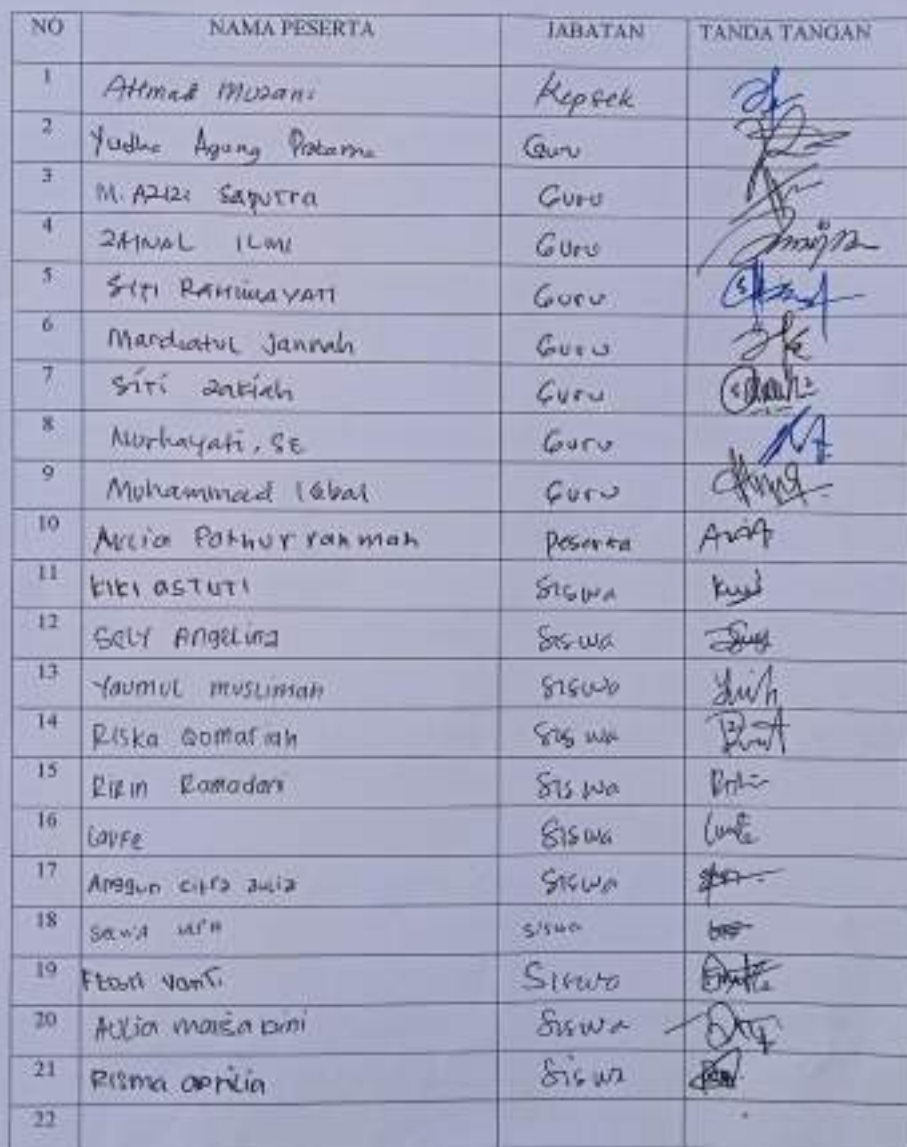 NO NAMA PESERTA JABATAN TANDA TANGAN
1 Ahmad Muzani Kepsek
2 Yudha Agung Pratama Guru
3 M. Azizi Saputra Guru
4 ZAINAL ILMI Guru
5 SITI RAHMAYATI Guru
6 Mardiatul Jannah Guru
7 Siti Zakiah Guru
8 Nurhayati, SE Guru
9 Muhammad Iqbal Guru
10 Aulia Fathur rahmah Peserta
11 KIKI ASTUTI Siswa
12 Selly Angelina Siswa
13 Yaumul muslimah Siswa
14 Riska Qomariah Siswa
15 Ririn Ramadani Siswa
16 Siswa
17 Anggun citra aulia Siswa
18 siswa
19 Vanti Siswa
20 Aulia Siswa
21 Risma aprilia Siswa
22